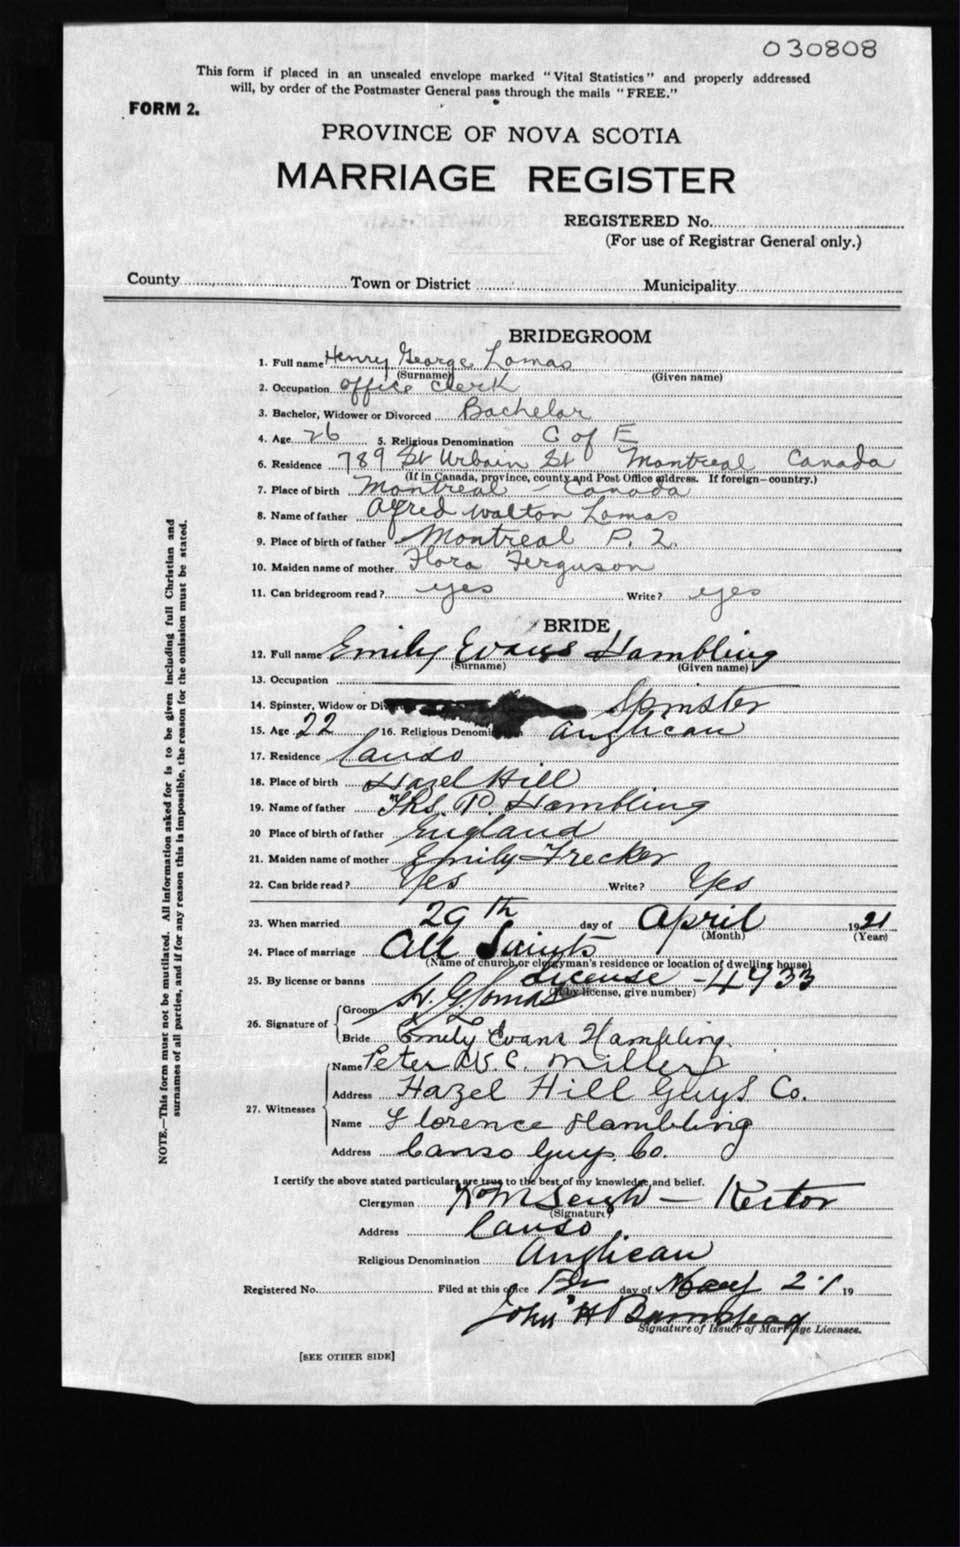 030808
This form if placed in an unsealed envelope marked "Vital Statistics" and properly addressed
will, by order of the Postmaster General pass through the mails "FREE."
FORM 2.
PROVINCE OF NOVA SCOTIA
MARRIAGE REGISTER
REGISTERED No.
(For use of Registrar General only.)
County Town or District Municipality
BRIDEGROOM
1. Full name Henry George Lomas
(Surname) (Given name)
2. Occupation office clerk
3. Bachelor, Widower or Divorced Bachelor
4. Age 26 5. Religious Denomination C of E
6. Residence 789 St Urbain St Montreal Canada
(If in Canada, province, county and Post Office address. If foreign—country.)
7. Place of birth Montreal - Canada
8. Name of father Alfred Walton Lomas
9. Place of birth of father Montreal P. Q.
10. Maiden name of mother Flora Ferguson
11. Can bridegroom read? yes Write? yes
BRIDE
12. Full name Emily Evans Hambling
(Surname) (Given name)
13. Occupation
14. Spinster, Widow or Di Spinster
15. Age 22 16. Religious Denomin Anglican
17. Residence Canso
18. Place of birth Hazel Hill
19. Name of father P. Hambling
20 Place of birth of father England
21. Maiden name of mother Emily Frecker
22. Can bride read? Yes Write? Yes
23. When married 29th day of April 1921
(Month) (Year)
24. Place of marriage All Saints
(Name of church or clergyman's residence or location of dwelling house)
25. By license or banns License 4933
(If by license, give number)
26. Signature of Groom H. G. Lomas
Bride Emily Evans Hambling.
27. Witnesses Name Peter W. C. Millery
Address Hazel Hill Guys Co.
Name Florence Hambling
Address Canso Guys. Co.
I certify the above stated particulars are true to the best of my knowledge and belief.
Clergyman - Rector
(Signature)
Address Canso
Religious Denomination Anglican
Registered No. Filed at this office day of May 21 19
John H
Signature of Issuer of Marriage Licenses.
[SEE OTHER SIDE]
NOTE.—This form must not be mutilated. All information asked for is to be given including full Christian and
surnames of all parties, and if for any reason this is impossible, the reason for the omission must be stated.